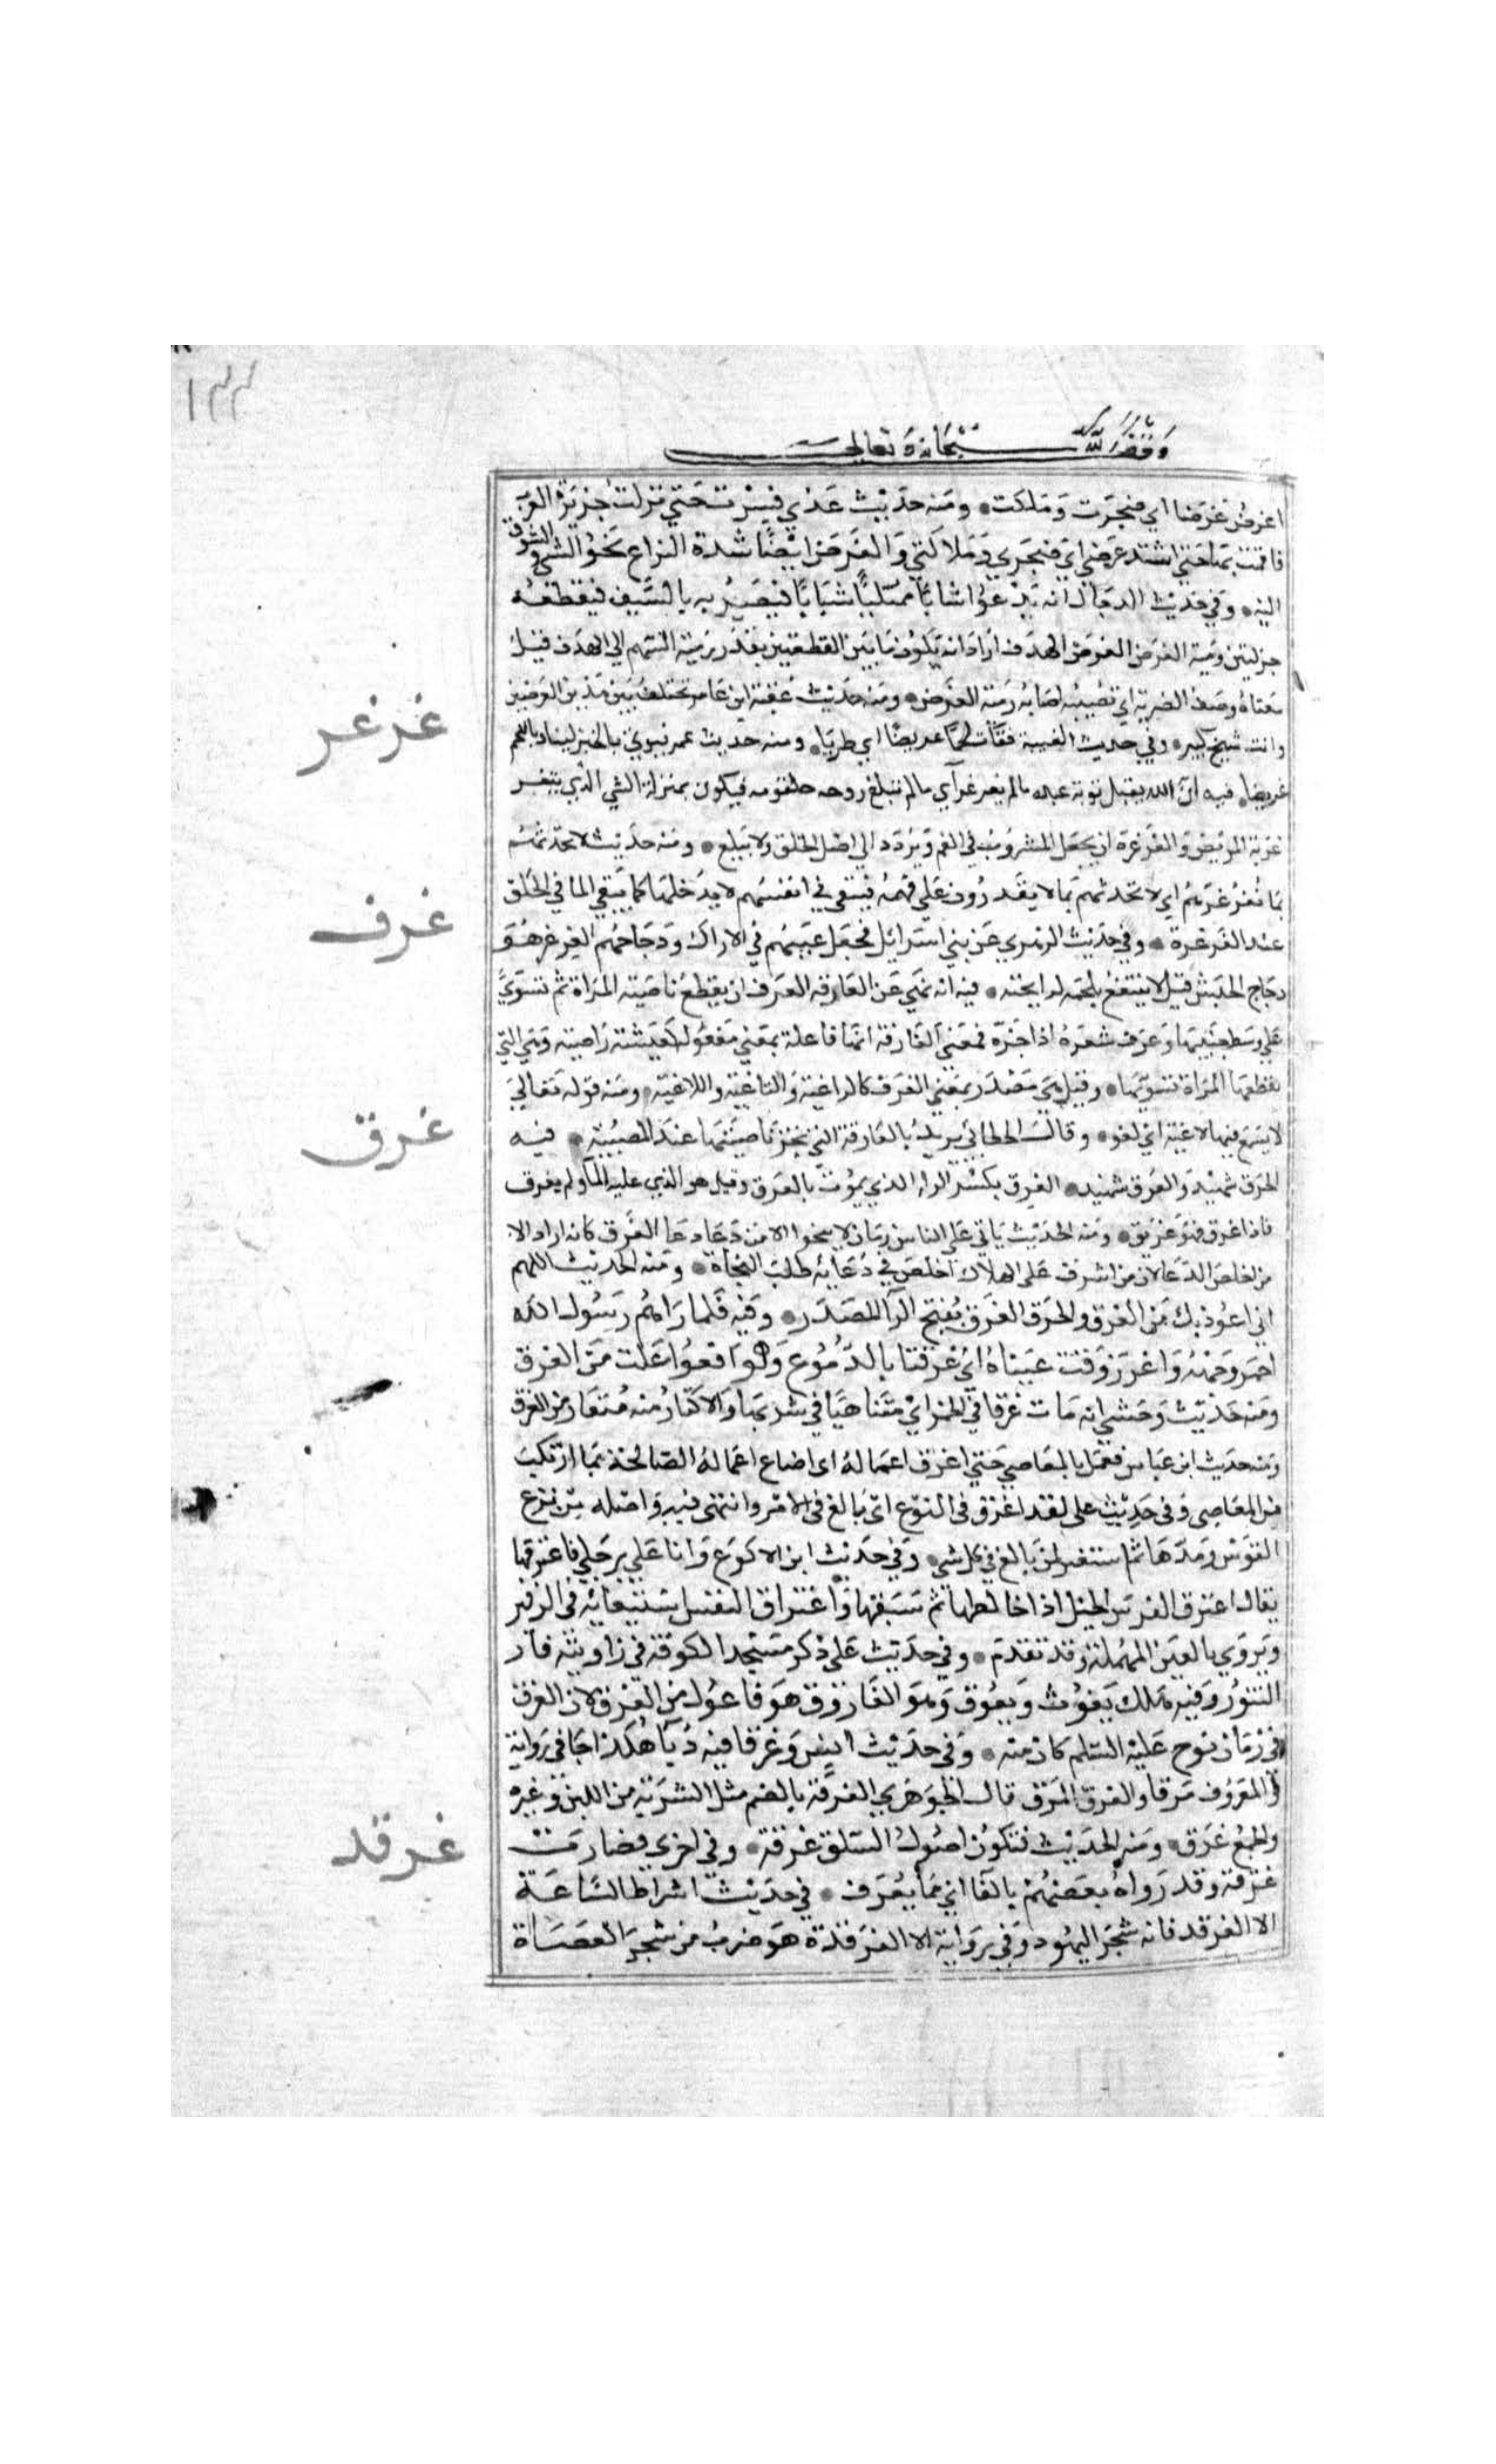 ١٢٢
وقف لله سبحانه وتعالى
اغرض غرضا اي ضجرت وملكت ومنه حديث عدي فسرت حتي نزلت جزيرة العرب
فاقمت بها حتي اشتد غرضي اي ضجري وملالتي والغرض ايضًا شدة النزاع نحو الشي والشوق
اليه وفي حديث الدجال انه يدعوا شابًا ممتلئًا شبابًا فيضربه بالسيف فيقطعه
جزلتين رمية الغرض الغرض الهدف اراد انه يكون ما بين القطعتين بقدر رمية السهم الي الهدف قيل
معناه وصف الضربة اي تصيبه اصابة رمية الغرض ومنه حديث عقبة ابن عامر تختلف بين هذين الغرضين
وانت شيخ كبير وفي حديث الغيبة فقاءت لحمًا غريضًا اي طريا ومنه حديث عمر فيوتي بالخبز لينا وباللحم
غريضا فيه ان الله يقبل توبة عبده ما لم يغرغر اي ما لم تبلغ روحه حلقومه فيكون بمنزلة الشي الذي يتغر
غربه المريض والغرغرة ان يجعل المشروب في الفم ويردد الي اصل الحلق ولا يبلع ومنه حديث لا تحدثهم
بما يغرغرهم اي لا تحدثهم بما لا يقدرون علي فهمه فيبقي في انفسهم لا يدخلها كما يبقي الما في الحلق
عند الغرغرة وفي حديث الزهري عن بني اسرائل فجعل عنبهم في الاراك ودجاجهم الغرغر هو
دجاج الحبش قيل لا ينتفع بلحمه لرايحته فيه انه نهي عن الغارفة الغرف ان يقطع ناصية المراة ثم تسوي
علي وسط جبينها وغرف شعره اذا جزه فمعني الغارفة انها فاعلة بمعني مفعوله كعيشة راضية وهي التي
تقطعها المراة تسويها وقيل هي مصدر بمعني الغرف كالراغية والثاغية واللاغية ومنه قوله تعالي
لا يسمع فيها لاغية اي لغو وقال الخطابي يريد بالغارفة التي تجز ناصيتها عند المصيبة فيه
الحرق شهيد والغرق شهيد الغرق بكسر الرا الذي يموت بالغرق وقيل هو الذي غلبه الما ولم يغرق
فاذا غرق فهو غريق ومنه الحديث ياتي علي الناس زمان لا ينجوا الا من دعا دعا الغرق كانه اراد الا
من اخلص الدعا لان من اشرف علي الهلاك اخلص في دعائه طلب النجاة ومنه الحديث اللهم
اني اعوذ بك من الغرق والحرق الغرق بفتح الرا المصدر وفيه فلما راهم رسول الله
احمر وجهه واغرورقت عيناه اي غرقتا بالدموع وهو افعوعلت من الغرق
ومنه حديث وحشي انه مات غرقا في الخمر اي متناهيا في شربها والاكثار منه مستعار من الغرق
ومنه حديث ابن عباس فعمل بالمعاصي حتي اغرق اعماله اي اضاع اعماله الصالحة بما ارتكب
من المعاصي وفي حديث علي لقد اغرق في النزع اي بالغ في الامر وانتهى فيه واصله من نزع
القوس ومدها ثم استعير لمن بالغ في كل شي وفي حديث ابن الاكوع وانا علي رجلي فاغترقها
يقال اغترق الفرس الخيل اذا خالطها ثم سبقها واغتراق النفس استيعابه في الزفير
ويروي بالعين المهملة وقد تقدم وفي حديث علي ذكر مسجد الكوفة في زاويته فار
التنور وفيه هلك يغوث ويعوق وهو الغاروق هو فاعول من الغرق لان الغرق
في زمان نوح عليه السلم كان منه وفي حديث انس وغرقا فيه دباء هكذا جا في رواية
والمعروف مرقا والغرق المرق قال الجوهري الغرقة بالضم مثل الشربة من اللبن وغيره
والجمع غرق ومنه الحديث فتكون اصول السلق غرقة وفي اخري فصارت
غرقة وقد رواه بعضهم بالفا اي مما يغرف في حديث اشراط الساعة
الا الغرقد فانه شجر اليهود وفي رواية الا الغرقدة هو ضرب من شجر العضاة
غرغر
غرف
غرق
غرقد